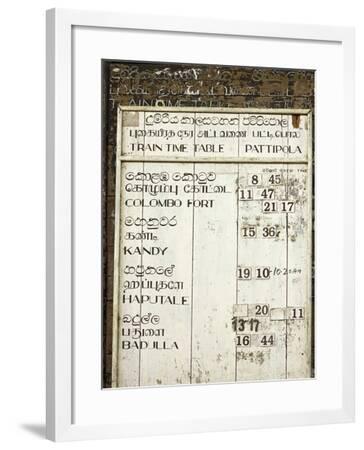 TRAIN TIME TABLE
දුම්රිය කාලසටහන පට්ටිපොල
புகையிரத நேர அட்டவணை பட்டிபொல
TRAIN TIME TABLE PATTIPOLA
කොළඹ කොටුව 8 45
கொழும்பு கோட்டை 11 47
COLOMBO FORT 21 17
මහනුවර
கண்டி 15 36
KANDY
හපුතලේ
ஹப்புதளே 19 10
HAPUTALE
බදුල්ල 20 11
பதுளை 13 17
BADULLA 16 44